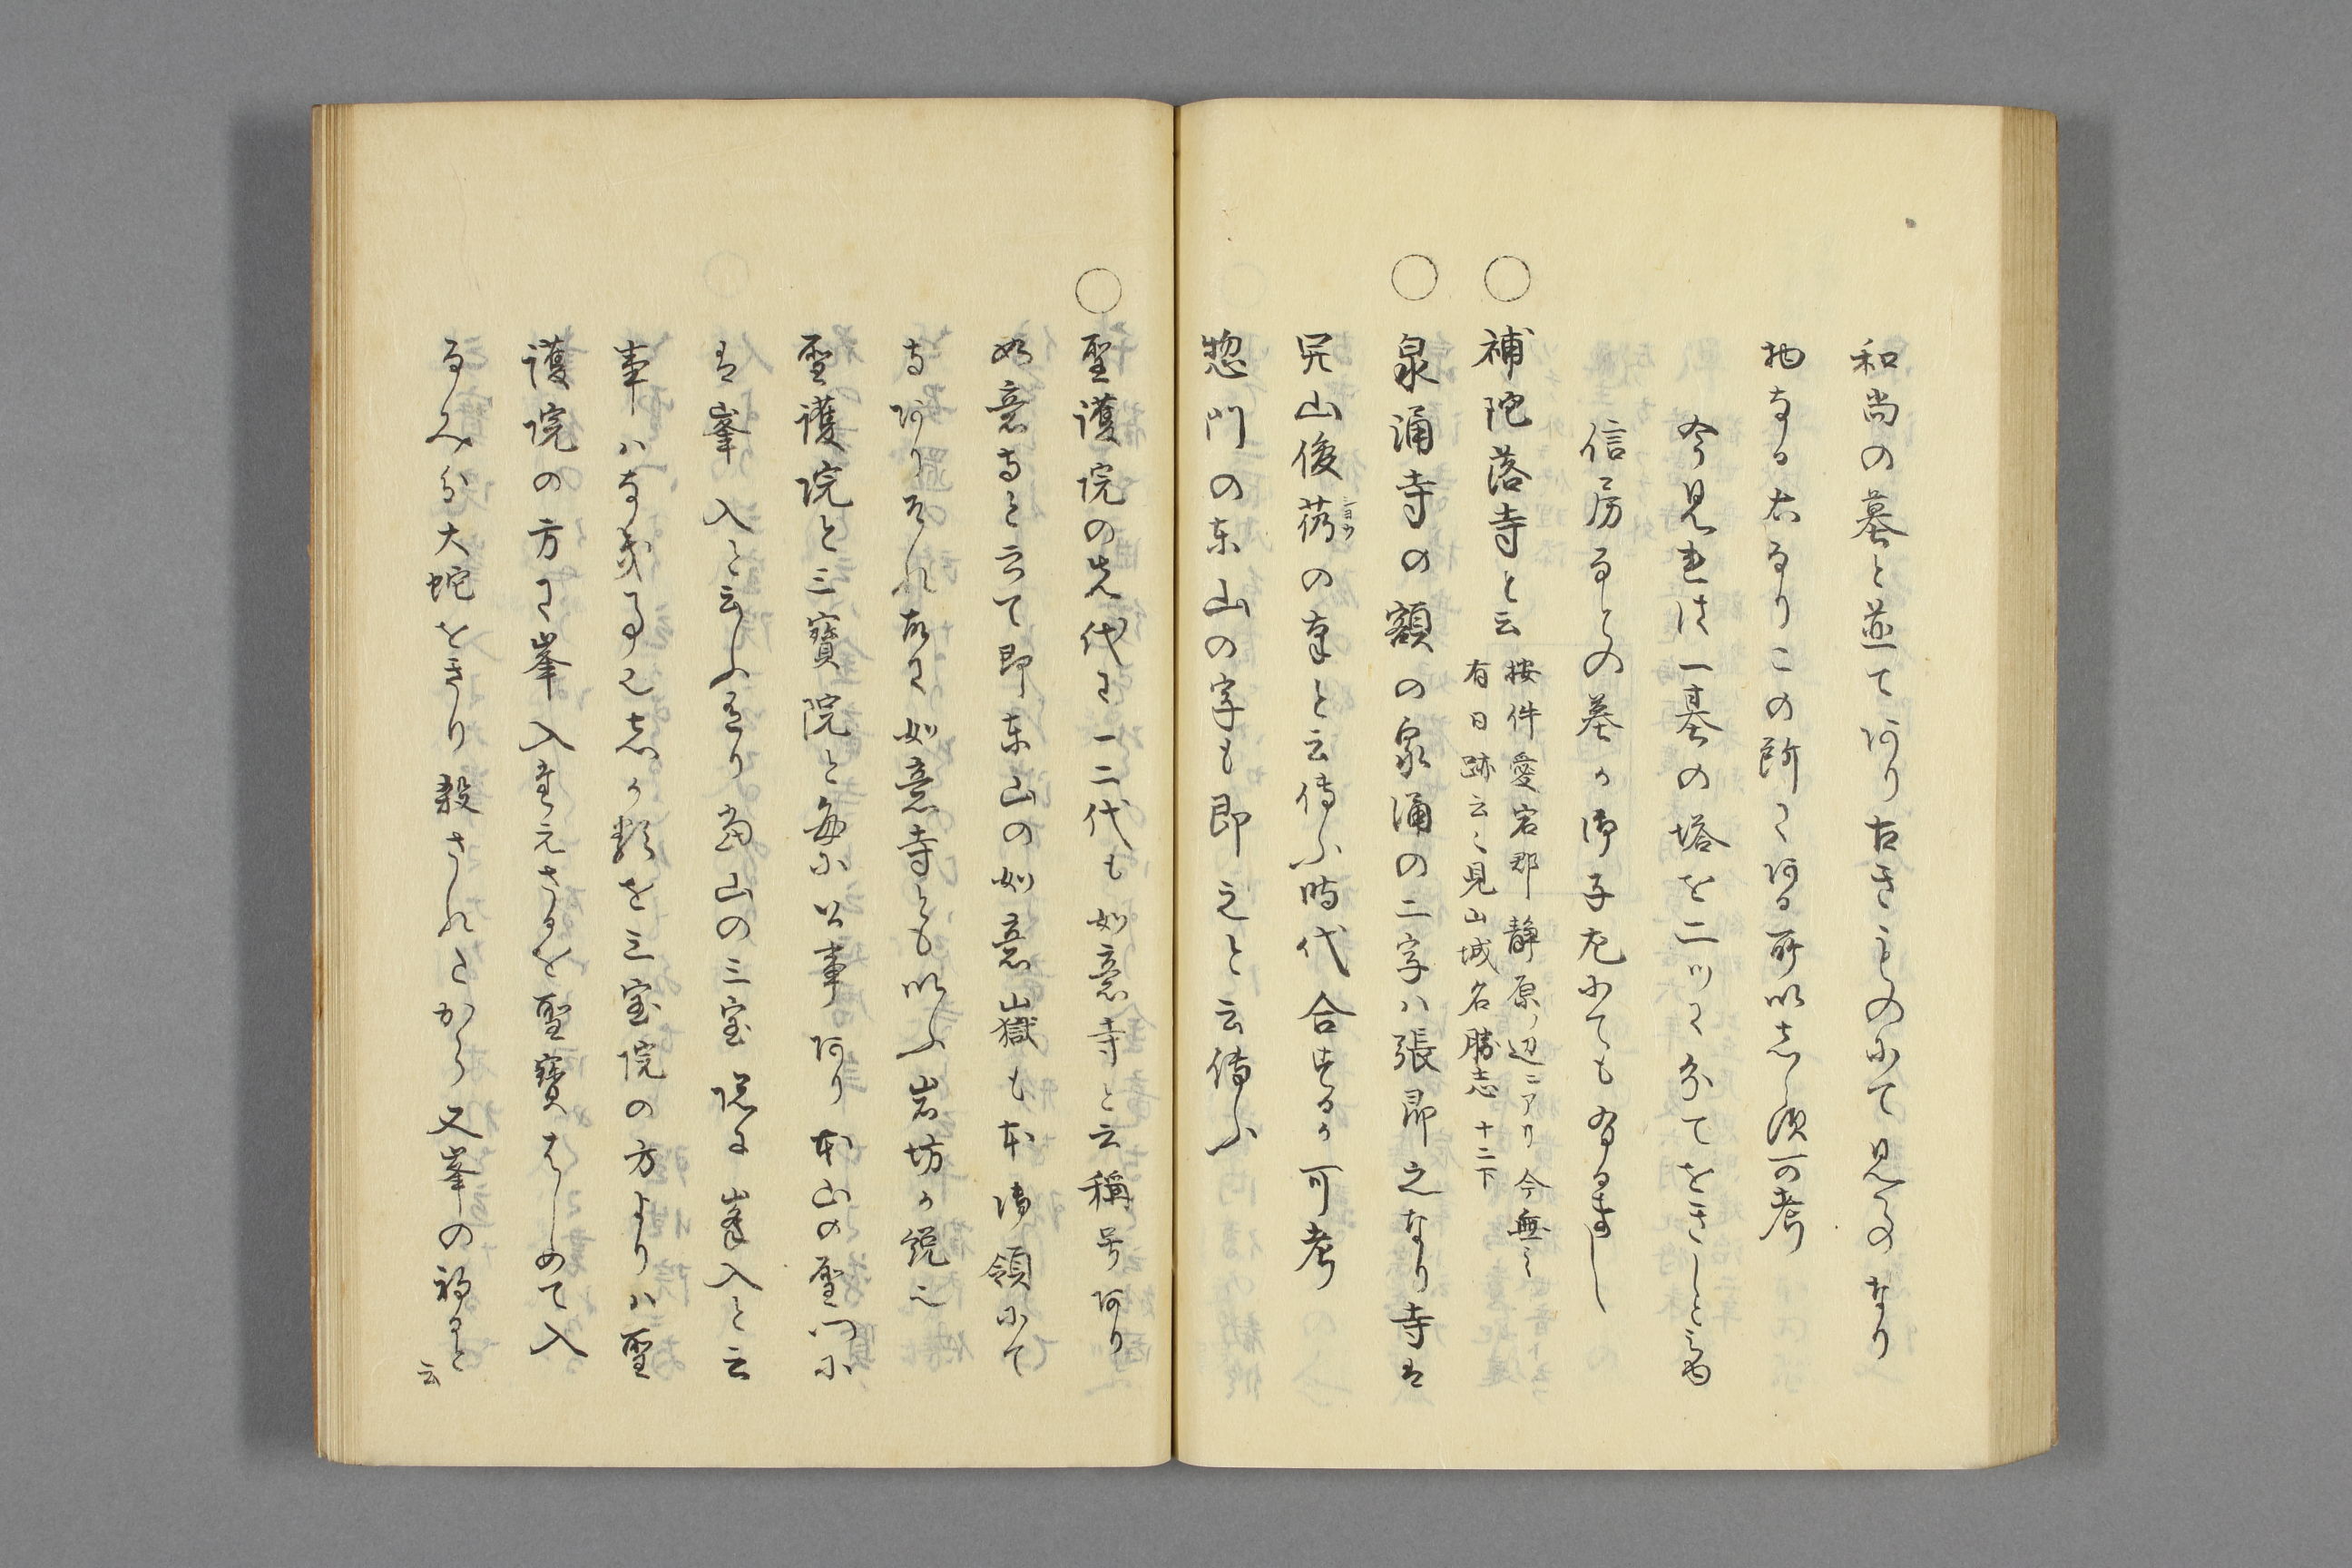 和尚の墓と並てあり古きものにて見ゆるなり
地なる右なりこの所にある所以しらす可考
今見れは一基の塔を二ツにわてをきしと
信房なとの墓か御子左にても有るまし
○補陀落寺と云 按件愛宕郡静原ノ辺ニアリ今無之
有日跡云々見山城名勝志十二下
○泉涌寺の額の泉涌の二字ハ張即之なり寺は
開山俊芿の筆と云傳ふ時代合せるか可考
シヨウ
惣門の東山の字も即之と云傳ふ
○聖護院の先代に一二代も如意寺と云稱号あり
如意寺と云て即東山の如意嶽も本御領にて
寺ありそれ故に如意寺とも次ふ岩坊か説也
聖護院と三寶院と毎に公事あり本山の聖門に
は峯入と云ふ有り當山の三宝院に峯入と云
事ハなき事也しか類を三宝院の方よりハ聖
護院の方に峯入きえさるを聖寶はしめて入
るみな大蛇をきり殺されしから又峯の初ると
云